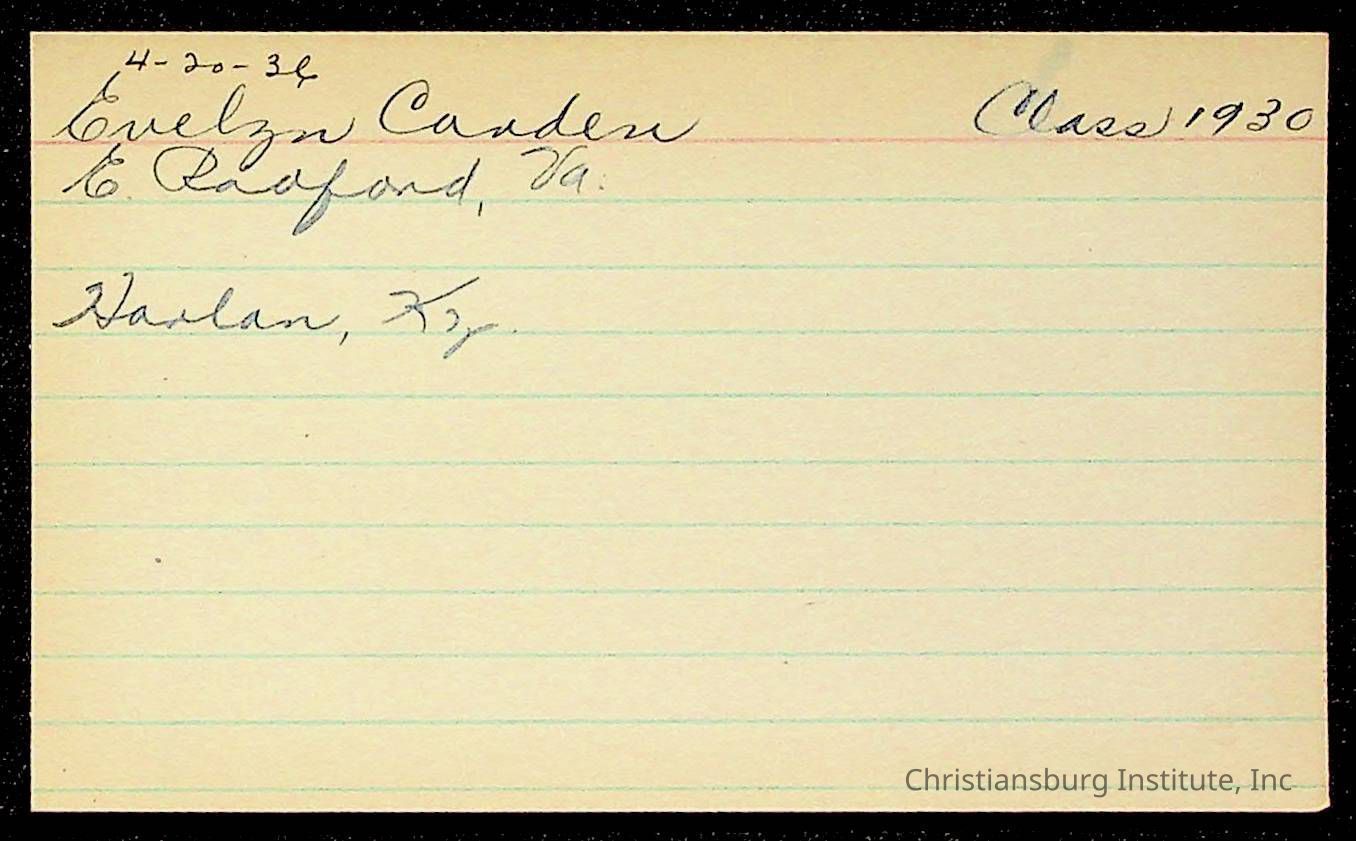 4-20-36
Evelyn Carden Class 1930
E. Radford, Va.
Harlan, Ky.
Christiansburg Institute, Inc